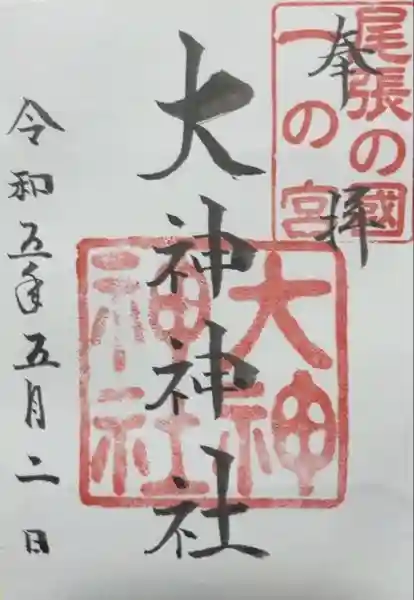 尾張の國
一の宮
奉拝
大神神社
大神
神社
令和五年五月二日